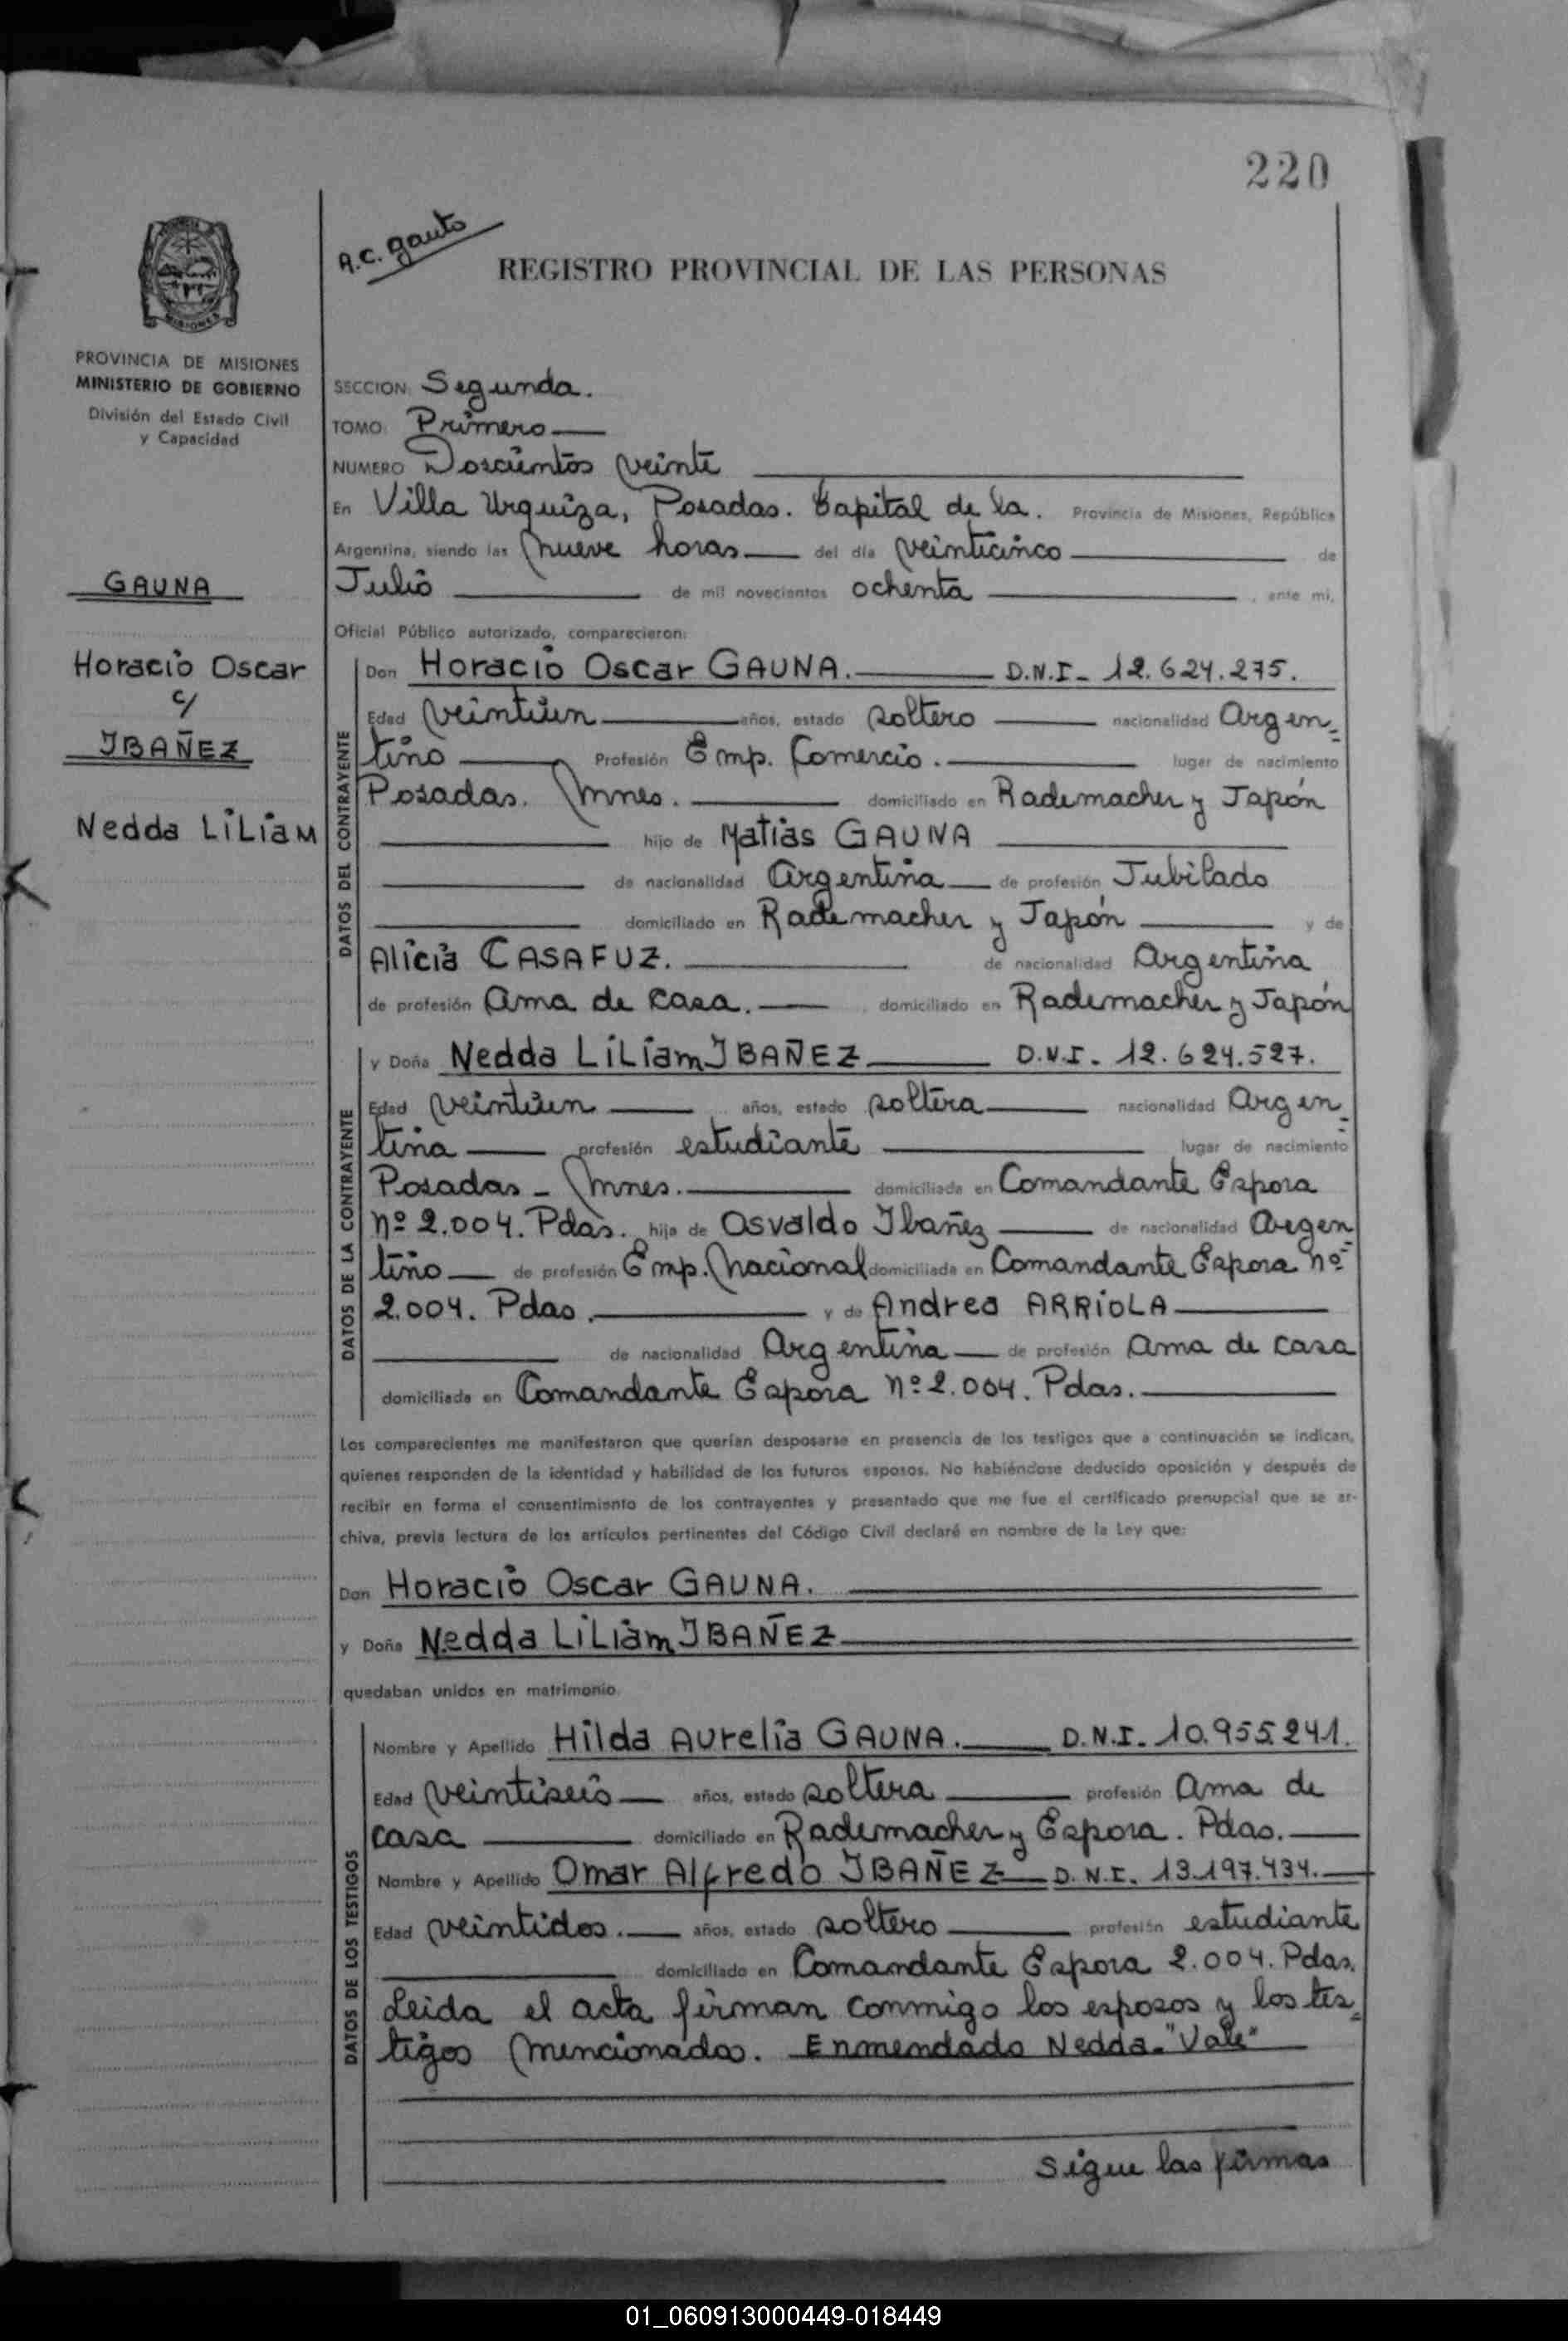 220
A.C. Gauto
REGISTRO PROVINCIAL DE LAS PERSONAS
MISIONES
PROVINCIA DE MISIONES
MINISTERIO DE GOBIERNO
División del Estado Civil
y Capacidad
GAUNA
Horacio Oscar
c/
IBAÑEZ
Nedda Liliam
SECCION: Segunda.
TOMO: Primero
NUMERO Doscientos veinte
En Villa Urquiza, Posadas. Capital de la. Provincia de Misiones, República
Argentina, siendo las nueve horas del día veinticinco de
Julio de mil novecientos ochenta, ante mi,
Oficial Público autorizado, comparecieron:
DATOS DEL CONTRAYENTE
Don Horacio Oscar GAUNA. D.N.I- 12.624.275.
Edad veintiun años, estado soltero nacionalidad Argen=
tino Profesión Emp. Comercio. lugar de nacimiento
Posadas. Mnes. domiciliado en Rademacher y Japón
hijo de Matias GAUNA
de nacionalidad Argentina de profesión Jubilado
domiciliado en Rademacher y Japón y de
Alicia CASAFUZ. de nacionalidad Argentina
de profesión Ama de casa. domiciliado en Rademacher y Japón
DATOS DE LA CONTRAYENTE
y Doña Nedda Liliam IBAÑEZ D.N.I- 12.624.527.
Edad veintiun años, estado soltera nacionalidad Argen=
tina profesión estudiante lugar de nacimiento
Posadas - Mnes. domiciliada en Comandante Espora
nº 2.004. Pdas. hija de Osvaldo Ibañez de nacionalidad Argen=
tino de profesión Emp. Nacional domiciliado en Comandante Espora nº
2.004. Pdas. y de Andrea ARRIOLA
de nacionalidad Argentina de profesión Ama de casa
domiciliada en Comandante Espora nº 2.004. Pdas.
Los comparecientes me manifestaron que querían desposarse en presencia de los testigos que a continuación se indican,
quienes responden de la identidad y habilidad de los futuros esposos. No habiéndose deducido oposición y después de
recibir en forma el consentimiento de los contrayentes y presentado que me fue el certificado prenupcial que se ar-
chiva, previa lectura de los artículos pertinentes del Código Civil declaré en nombre de la Ley que:
Don Horacio Oscar GAUNA.
y Doña Nedda Liliam IBAÑEZ
quedaban unidos en matrimonio.
DATOS DE LOS TESTIGOS
Nombre y Apellido Hilda Aurelia GAUNA. D.N.I- 10.955.241.
Edad veintiseis años, estado soltera profesión Ama de
casa domiciliado en Rademacher y Espora. Pdas.
Nombre y Apellido Omar Alfredo IBAÑEZ D.N.I. 13.197.434.
Edad veintidos. años, estado soltero profesión estudiante
domiciliado en Comandante Espora 2.004. Pdas.
Leida el acta firman conmigo los esposos y los tes=
tigos mencionados. Enmendado Nedda. "Vale"
Sigue las firmas
01_060913000449-018449